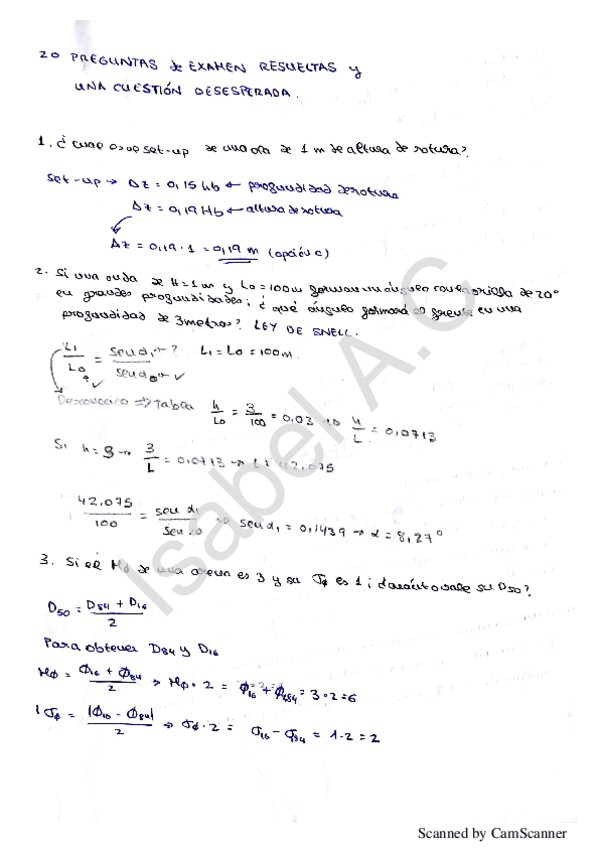 20 PREGUNTAS de EXAMEN RESUELTAS y
UNA CUESTIÓN DESESPERADA.
1. ¿ cuál es el set-up de una ola de 1 m de altura de rotura?
set-up → Δz = 0,15 hb ← profundidad de rotura
Δz = 0,19 Hb ← altura de rotura
Δz = 0,19 · 1 = 0,19 m (opción c)
2. Si una onda de H=1m y Lo=100m forma un ángulo con la orilla de 20°
en grandes profundidades, ¿ qué ángulo formará el frente en una
profundidad de 3 metros? LEY DE SNELL.
L1/Lo = sen α1 → ?/sen αo → ✓ L1 = Lo = 100m
Desconocido => Tabla h/Lo = 3/100 = 0,03 → h/L = 0,0713
Si h = 3 → 3/L = 0,0713 → L = 42,075
42,075/100 = sen α1/sen 20 → sen α1 = 0,1439 → α = 8,27°
3. Si el Mϕ de una arena es 3 y su σϕ es 1 ¿ cuánto vale su D50?
D50 = D84 + D16/2
Para obtener D84 y D16
Mϕ = ϕ16 + ϕ84/2 → Mϕ · 2 = ϕ16 + ϕ84 = 3 · 2 = 6
σϕ = |ϕ16 - ϕ84|/2 → σϕ · 2 = σ16 - σ84 = 1 · 2 = 2
Isabel A.C
Scanned by CamScanner